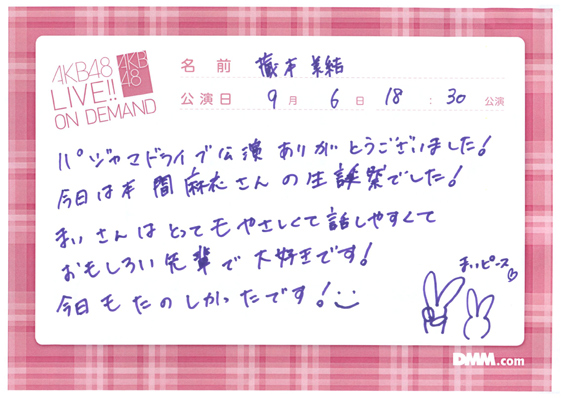 AKB48
LIVE!!
ON DEMAND
AKB
48
名前 蔵本美結
公演日 9月6日 18:30 公演
パジャマドライブ公演ありがとうございました!
今日は本間麻衣さんの生誕祭でした!
まいさんはとってもやさしくて話しやすくて
おもしろい先輩で大好きです!
今日もたのしかったです!
まいピース
DMM.com